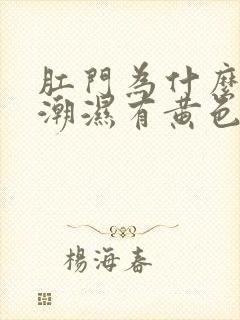 肛門為什麼
潮濕有黃色
楊海春